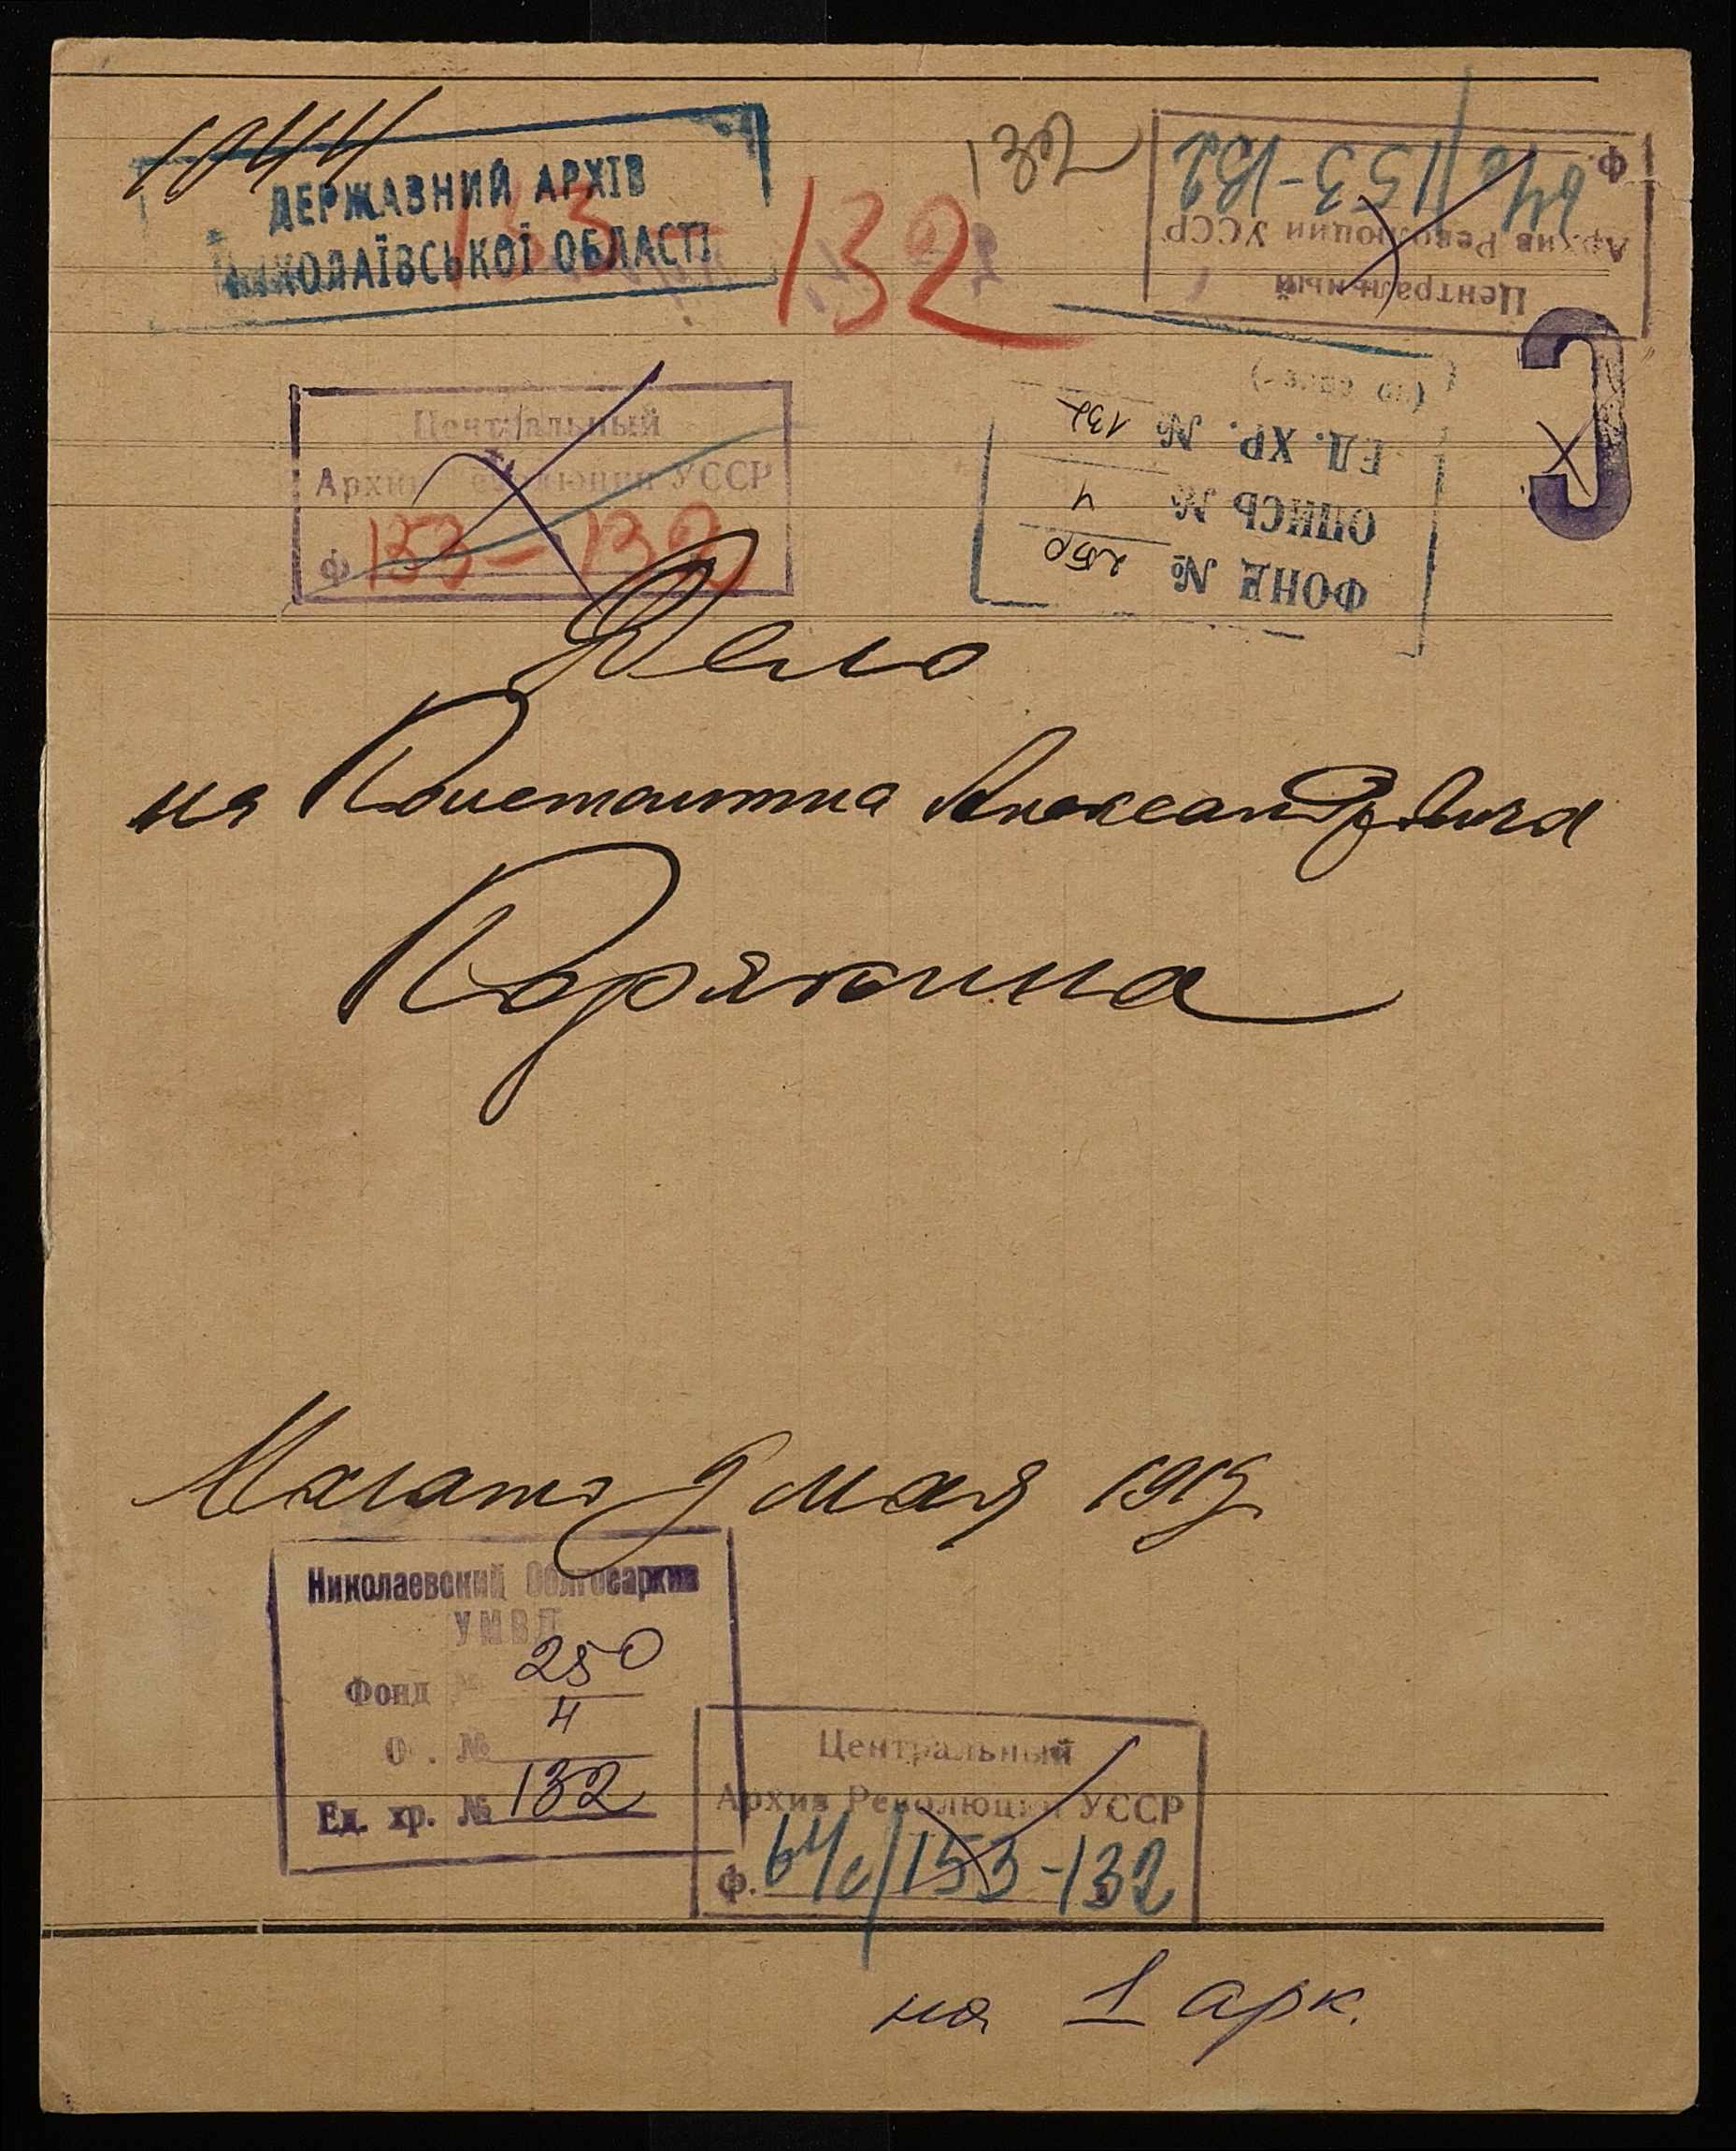 1044
ДЕРЖАВНИЙ АРХІВ
МИКОЛАЇВСЬКОЇ ОБЛАСТІ
153 - 132
132
Центральный
Архив Революции УССР
Ф. 64с/153-132
С
Центральный
Архив Революции УССР
Ф 153-132
ФОНД № 250
ОПИСЬ № 4
ЕД. ХР. № 132
Дело
на Константина Александровича
Корякина
Начато 9 мая 1919 г.
Николаевский Облгосархив
УМВД
Фонд № 250
О . № 4
Ед. хр. № 132
Центральный
Архив Революции УССР
Ф. 64с/153-132
на 1 арк.